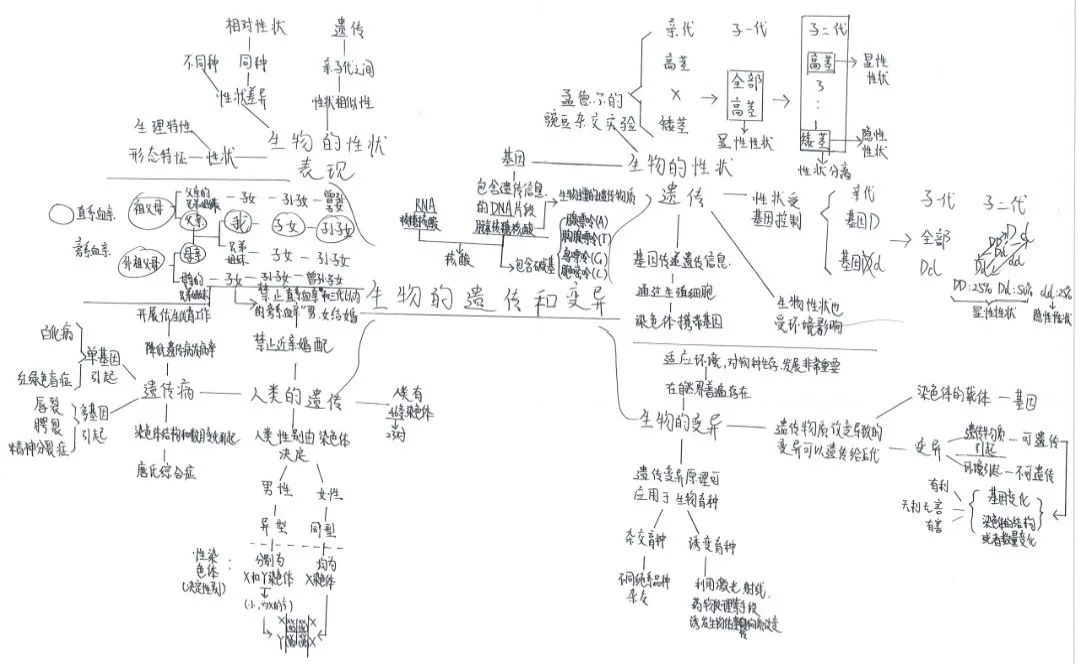 相对性状
遗传
不同种
同种
亲子代之间
性状差异
性状相似性
生理特性
形态特征
性状
生物的性状
表现
直系血亲
旁系血亲
祖父母
父母的
兄弟姐妹
子女
孙子女
曾孙
父亲
我
子女
孙子女
兄弟
姐妹
子女
孙子女
外祖父母
母亲
子女
孙子女
曾孙子女
生物的遗传和变异
亲代
子一代
子二代
孟德尔的
豌豆杂交实验
高茎
×
矮茎
全部
高茎
显性性状
高茎
3
:
1
矮茎
显性
性状
隐性
性状
性状分离
生物的性状
遗传
基因
包含遗传信息
的DNA片段
脱氧核糖核酸
RNA
核糖核酸
核酸
生物主要的遗传物质
包含碱基
腺嘌呤(A)
胸腺嘧啶(T)
鸟嘌呤(G)
胞嘧啶(C)
性状受
基因控制
亲代
基因D
基因d
子代
全部
Dd
子二代
D
d
DD
Dd
dd
DD:25%
Dd:50%
dd:25%
显性性状
隐性性状
基因传递遗传信息
通过生殖细胞
染色体携带基因
生物性状也
受环境影响
禁止“直系血亲”和“三代以内
的旁系血亲”男、女结婚
禁止近亲婚配
开展优生优育工作
降低遗传病发病率
白化病
红绿色盲症
单基因
引起
唇裂
腭裂
精神分裂症
多基因
引起
遗传病
染色体结构和数目变化引起
唐氏综合症
人类的遗传
人类有
46条染色体
23对
人类性别由染色体
决定
男性
女性
异型
同型
性染
色体
(决定性别)
:
分别为
X和Y染色体
均为
X染色体
X
X
Y
X
适应环境,对物种生存、发展非常重要
在自然界普遍存在
生物的变异
遗传物质改变导致的
变异可以遗传给后代
染色体的载体
基因
变异
遗传物质
引起
可遗传
环境引起
不可遗传
有利
无利无害
有害
基因变化
染色体的结构
或者数量变化
遗传变异原理可
应用于生物育种
杂交育种
诱变育种
不同纯系品种
杂交
利用激光、射线、
药物处理等手段